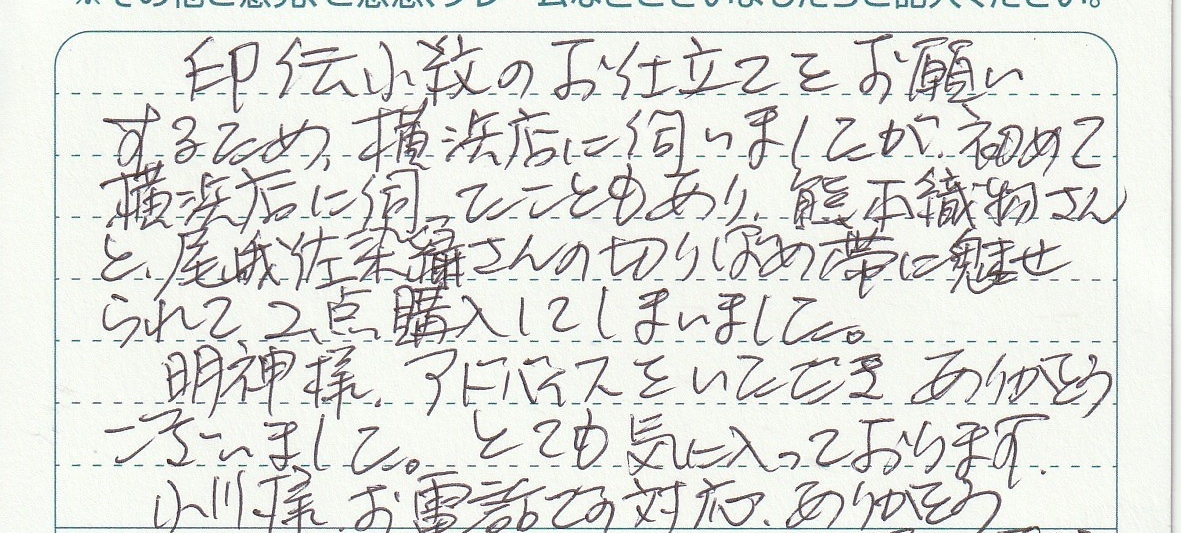 ※その他ご感想、ご意見、クレームなどございましたらご記入ください。
印伝小紋のお仕立てをお願い
するため、横浜店に伺いましたが、初めて
横浜店に伺ったこともあり、熊本織物さん
と、尾峨佐染繍さんの切りばめ帯に魅せ
られて、2点購入してしまいました。
明神様、アドバイスをいただき ありがとう
ございました。とても気に入っております。
小川様、お電話での対応、ありがとう